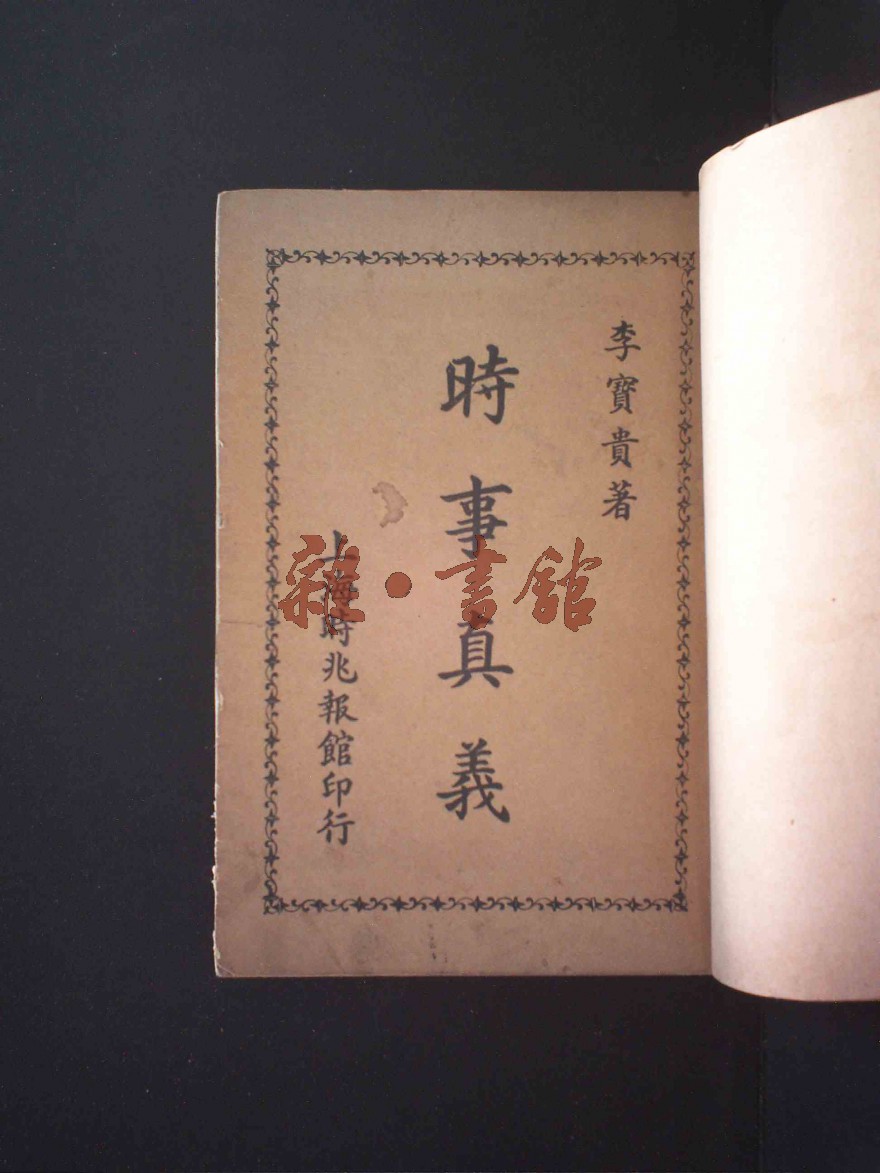 李寳貴著
時事真義
上海時兆報館印行
雜·書館